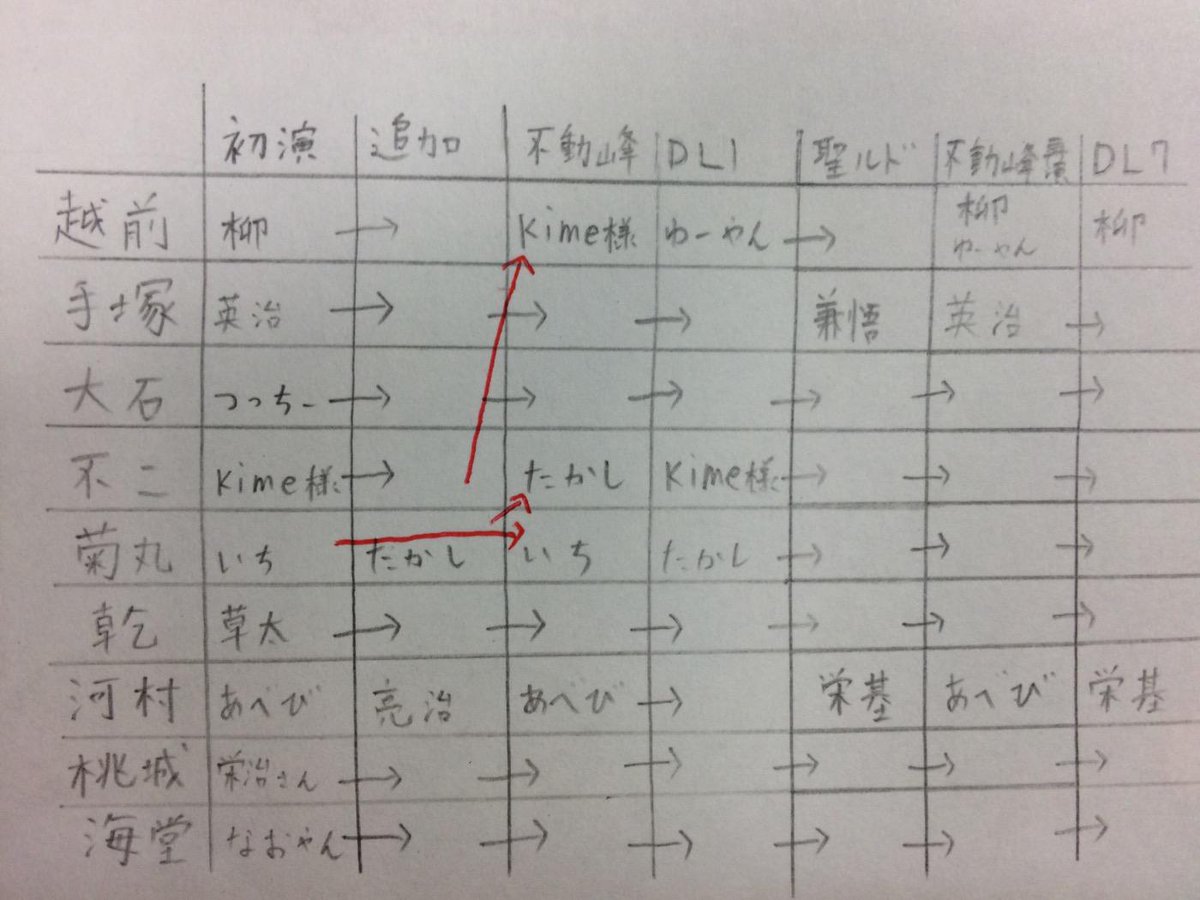 初演 追加 不動峰 DL1 聖ルド 不動峰 DL7
越前 柳 → Kime様 わーやん → 柳 わーやん 柳
手塚 英治 → → → 兼悟 英治 →
大石 つっちー → → → → → →
不二 Kime様 → たかし Kime様 → → →
菊丸 いち たかし いち たかし → → →
乾 草太 → → → → → →
河村 あべび 亮治 あべび → 栄基 あべび 栄基
桃城 栄治さん → → → → → →
海堂 なおやん → → → → → →